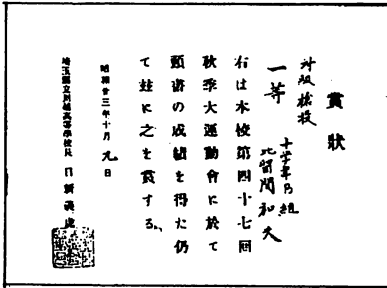 賞狀
対級捲投
一等
十学年乃組
比留間和久
右は本校第四十七回
秋季大運動會に於て
頭書の成績を得た仍
て玆に之を賞する。
昭和廿三年十月九日
埼玉縣立川越高等學校長